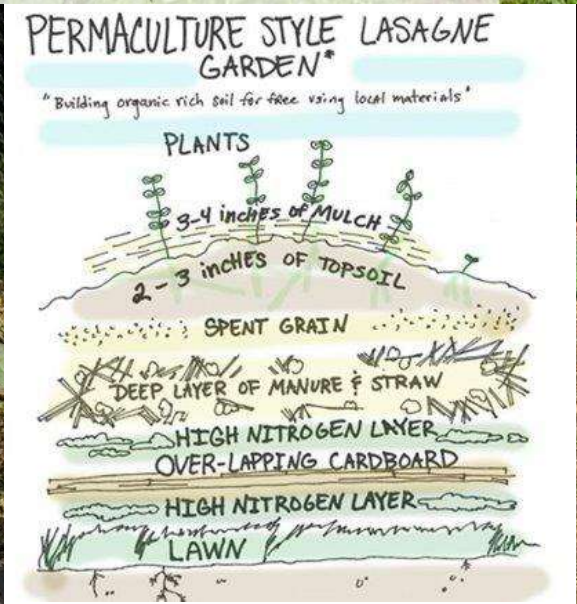 PERMACULTURE STYLE LASAGNE
GARDEN*
"Building organic rich soil for free using local materials"
PLANTS
3-4 inches of MULCH
2-3 inches OF TOPSOIL
SPENT GRAIN
DEEP LAYER OF MANURE & STRAW
HIGH NITROGEN LAYER
OVER-LAPPING CARDBOARD
HIGH NITROGEN LAYER
LAWN